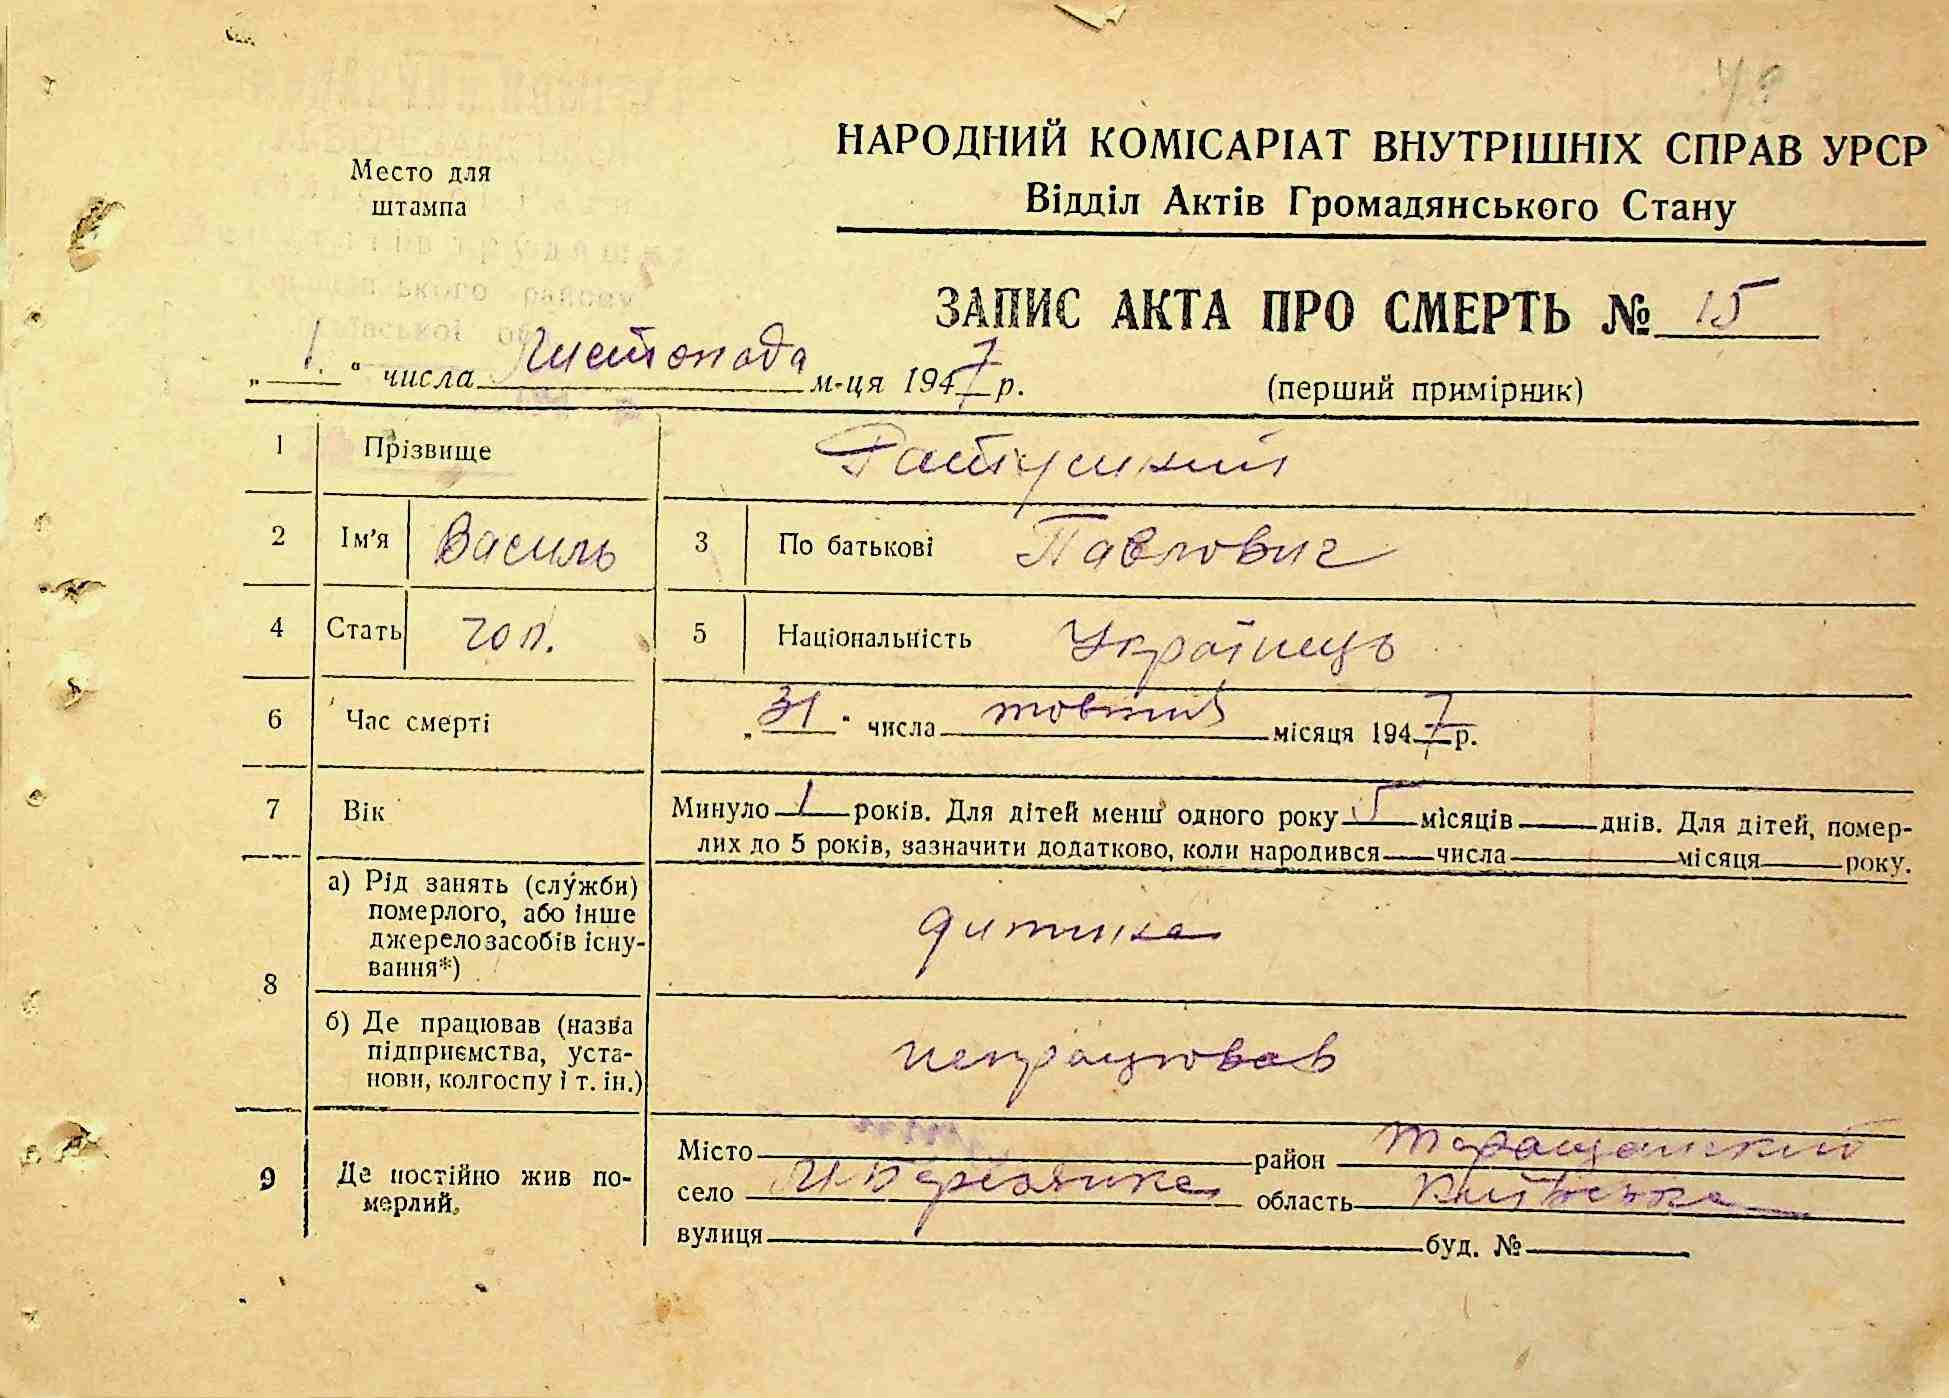 Место для
штампа
НАРОДНИЙ КОМІСАРІАТ ВНУТРІШНІХ СПРАВ УРСР
Відділ Актів Громадянського Стану
ЗАПИС АКТА ПРО СМЕРТЬ № 15
„ 1. “ числа Листопада м-ця 1947 р.
(перший примірник)
1 Прізвище Ратушний
2 Ім'я Василь 3 По батькові Павлович
4 Стать чол. 5 Національність Українець
6 Час смерті „ 31 “ числа жовтня місяця 1947 р.
7 Вік Минуло 1 років. Для дітей менш одного року 5 місяців днів. Для дітей, помер-
лих до 5 років, зазначити додатково, коли народився числа місяця року.
8 а) Рід занять (служби)
померлого, або інше
джерело засобів існу-
вання*)
дитина
б) Де працював (назва
підприємства, уста-
нови, колгоспу і т. ін.)
непрацював
9 Де постійно жив по-
мерлий.
Місто район Таращанский
село Березянка область Київська
вулиця буд. №